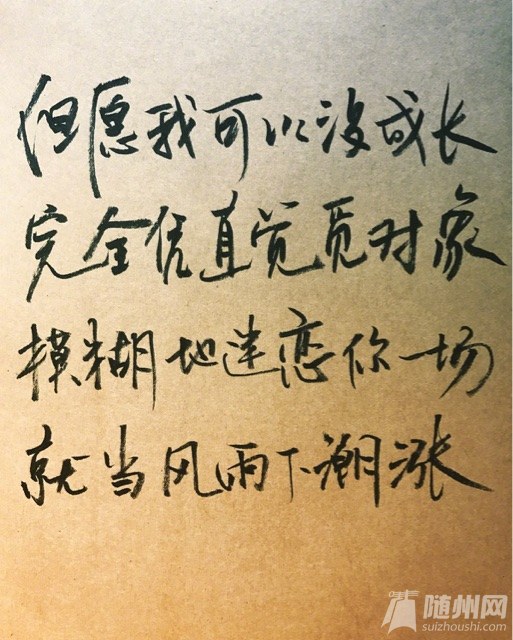 但愿我可以没成长
完全凭直觉觅对象
模糊地迷恋你一场
就当风雨下潮涨
随州网
suizhoushi.com